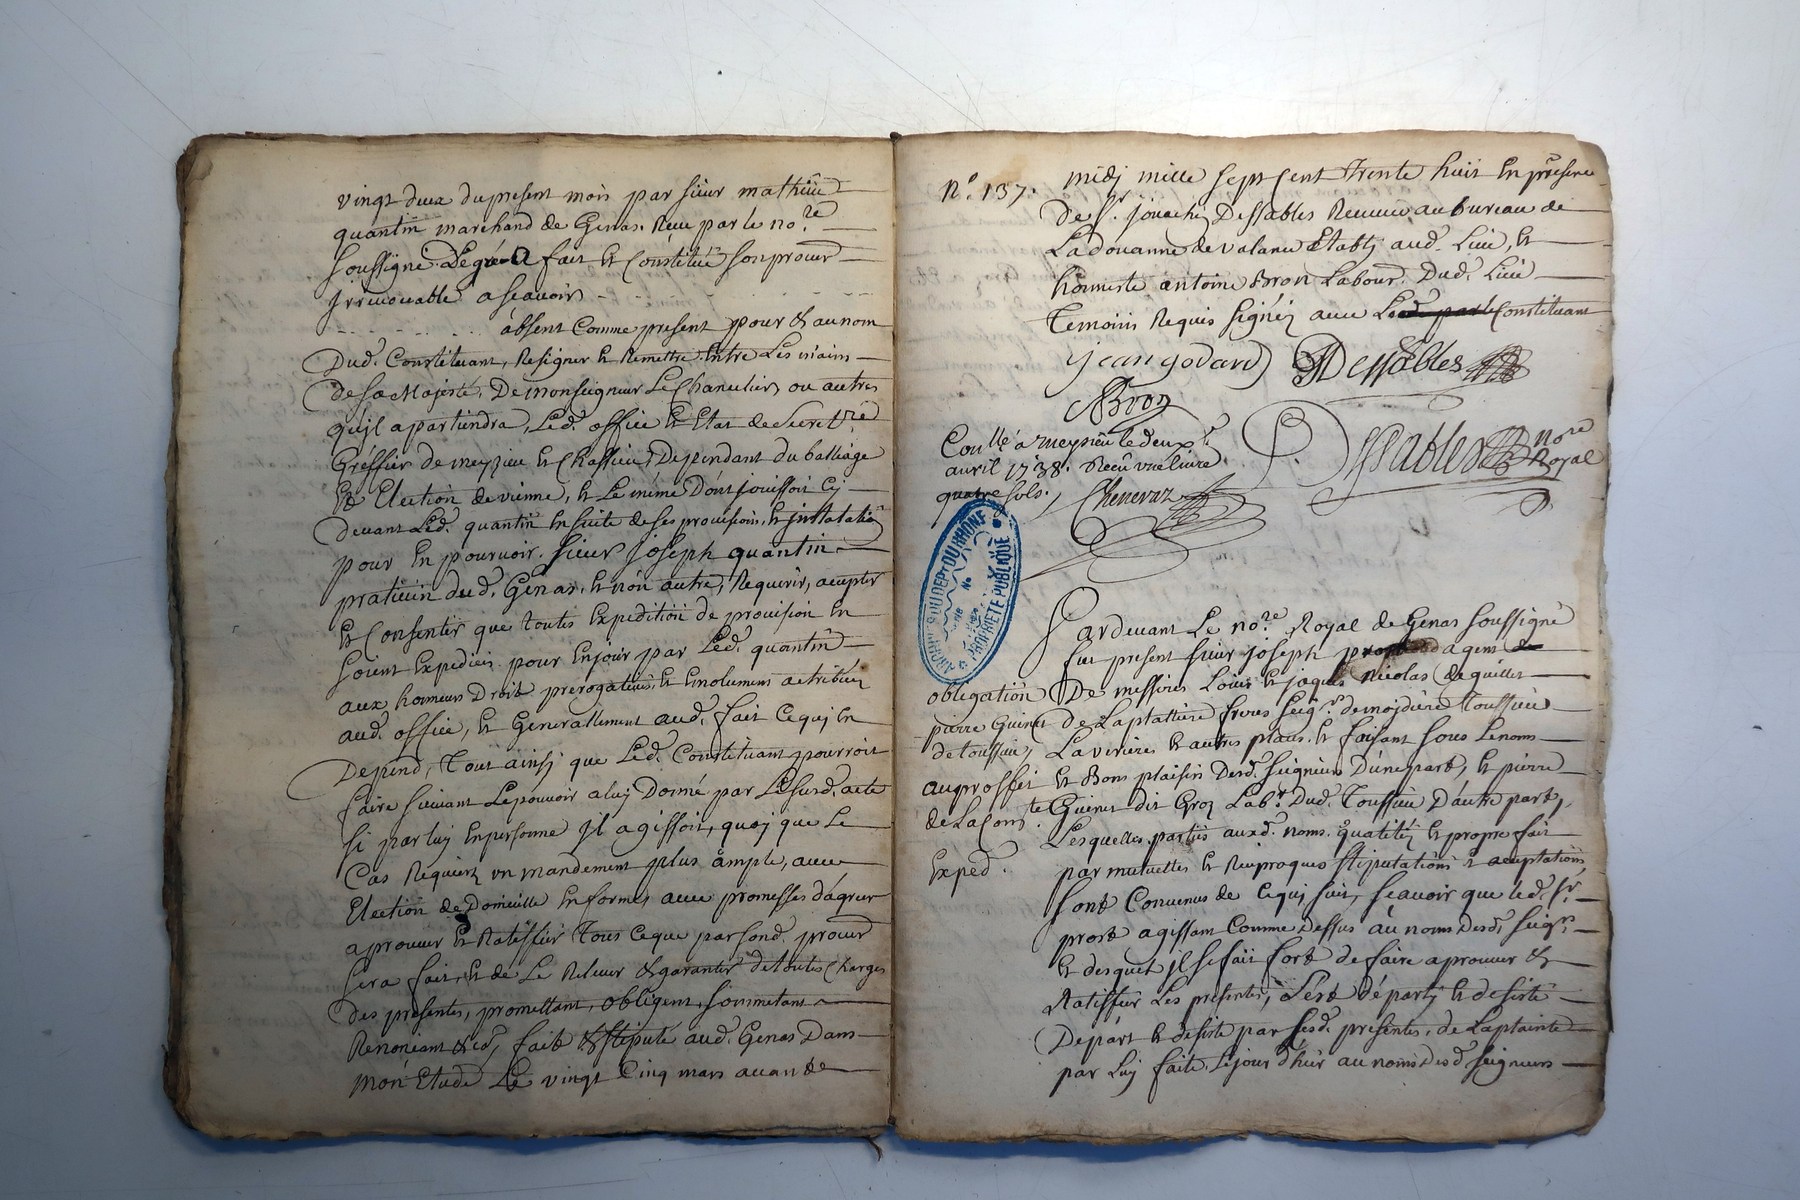 vingt deux du present mois par sieur mathieu
quantin marchand de Genas. Receu par le no.re
soussigne De gré a fait et Constitué son procur
Irrevocable ascavoir
absent Comme present pour & au nom
Dud. Constituant, Resigner et Remettre Entre Les mains
de sa Majesté, De monseigneur Le Chancelier, ou autres
qu'jl apartiendra, Led. office et Etat de Secret.re
Gréffier de meyzieu et Chassieu, Dependant du balliage
et Election de vienne, et Le même Dont jouissoit cy
devant Led. quantin Ensuite de ses provisions, et justalatiõ
pour En pourvoir. sieur joseph quantin
praticien dud. Genas, et nón autre, Requerir, accepter
et Consentir que toutes Expedition de provision En
soient Expediées pour Enjouir par Led. quantin
aux honneurs Droit prerogatives, et Emolument attribuez
aud. office, et Generallement aud. fait Ce quj En
Depend, Tout ainsj que Led. Constituant pourroit
faire suivant Le pouvoir a luj Donné par Le susd. acte
si par luy Enpersonne Jl agissoit, quoj que Le
Cas Requiere un mandement plus ample, avec
Election de Domicille En forme avec promesses d'agréer
aprouver et Ratiffier Tous Ceque par sond. procur
sera fait, et de Le Relever & garantir de toutes Charges
des presentes, promettant, obligent, soummetant
Renonceant &c.d, fait & stipulé aud. Genas Dans
mon Etude Le vingt Cinq mars avan de
N°. 137.
midj mille sept Cent Trente huit En presence
de S.r jouachĩ Dessables Receveur au bureau de
La douanne de valance Etablj aud. Lieu, et
honneste antoine Bron Labour. Dud. Lieu
Temoins Requis signéz avec Led. parte Constituant
jean godard Dessables
ABron
Coullé a meyzieu le deux.e
avril 1738. Receu une livre
quatre sols.
Chenevaz
P. Dessables no.re
Royal
ARCHIVES DU DEP.T DU RHÔNE
PROPRIETE PUBLIQUE
Pardevant Le no.re Royal de Genas soussigné
fut present sieur joseph prost agent de
obligation
pierre Guinet
de toussieu,
au proffit
de La Com.te
Exped.
De messires Louis et jaques Nicolas de guillet
de Laplattiere freres seig.rs de mojdiere Toussieu
La veriere et autres places, et faisant sous Le nom
et Bons plaisir Desd. seigneurs D'une part, et pierre
Guinet dit Groz Lab.r Dud. Toussieu D'autre part,
Lesquelles parties auxd. noms. qualitéz et propre fait
par mutuelles et Reciproques stipulations et acceptations
sont Convenus de Ce quj suit, scavoir que led. S.r
prost agissant Comme Dessus au nom Desd. seig.rs
et desquel jl se fait fort de faire aprouver &
Ratiffier Les presentes, s'est départj et desisté
Départ et desiste par Lesd. presentes, de La plainte
par Luj faite Le jour d'hier au nom Desd. seigneurs